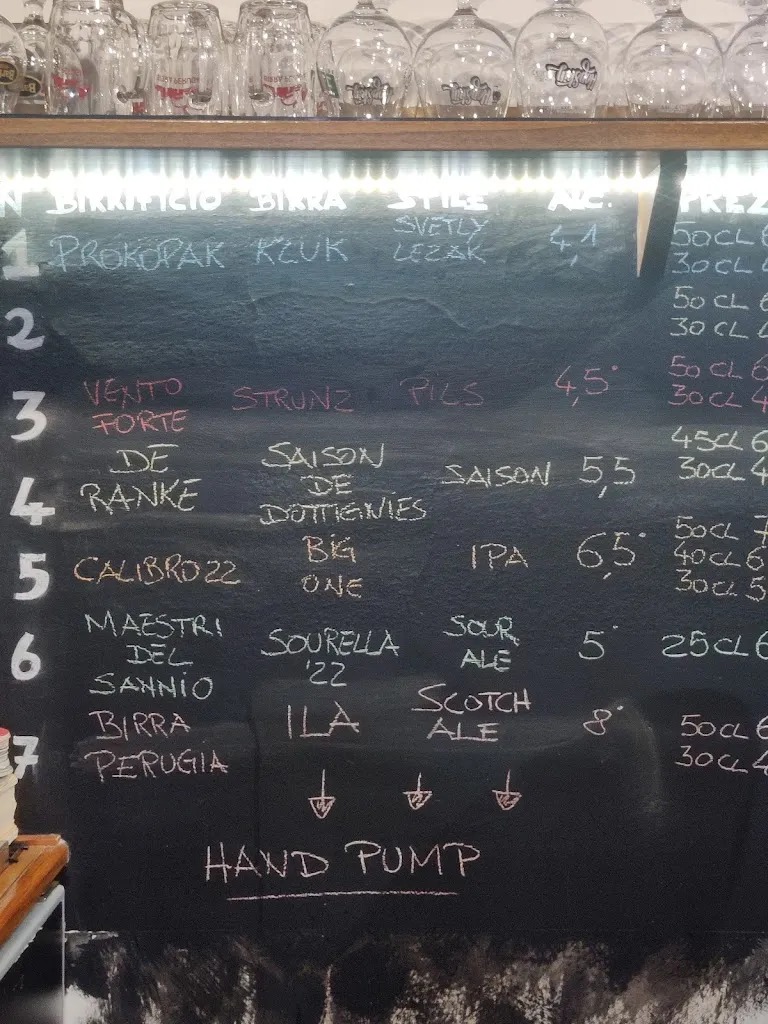 N BIRRIFICIO BIRRA STILE ALC. PREZ
1 PROKOPAK KLUK SVETLY LEZAK 4,1 50CL 6
30CL 4
2 50 CL 6
30 CL 4
3 VENTO FORTE STRUNZ PILS 4,5° 50 CL 6
30 CL 4
4 DE RANKE SAISON DE DOTTIGNIES SAISON 5,5 45CL 6
30CL 4
5 CALIBRO 22 BIG ONE IPA 6,5° 50CL 7
40CL 6
30CL 5
6 MAESTRI DEL SANNIO SOURELLA '22 SOUR ALE 5° 25CL 6
7 BIRRA PERUGIA ILA SCOTCH ALE 8° 50CL 6
30CL 4
HAND PUMP